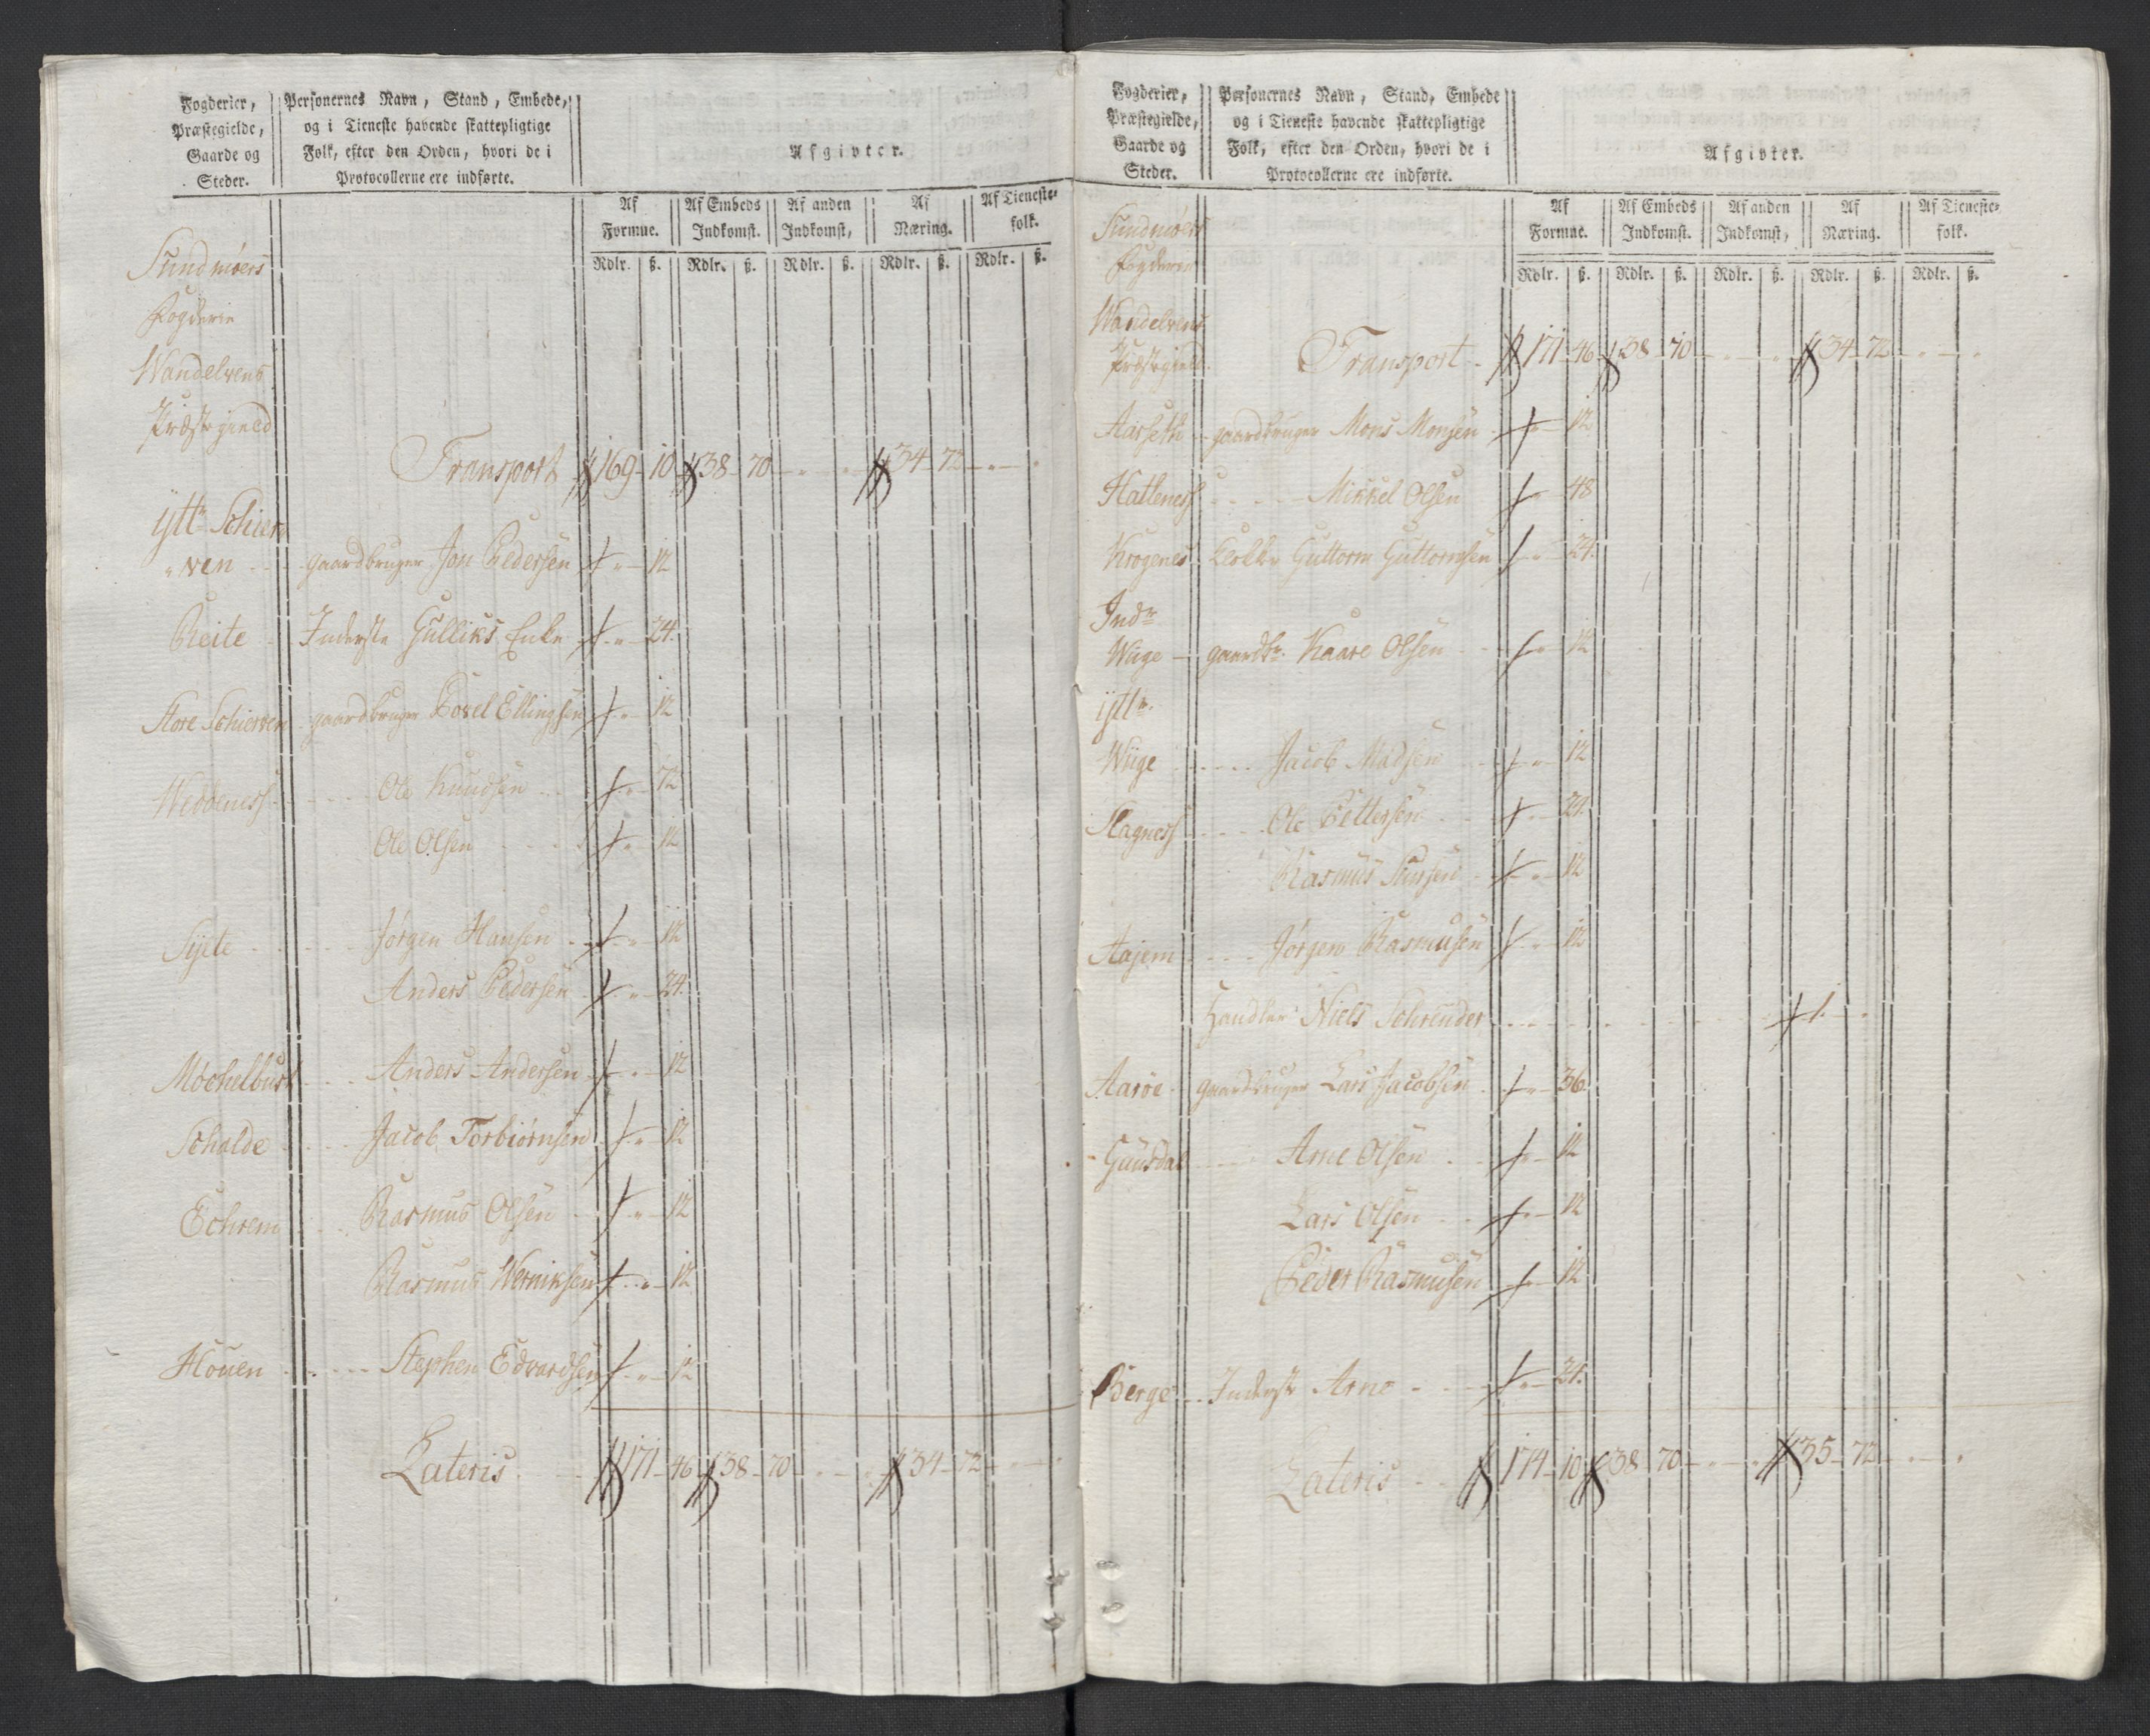 Fogderier,
Præstegielde,
Gaarde og
Steder.
Personernes Navn, Stand, Embede,
og i Tieneste havende skattepligtige
Folk, efter den Orden, hvori de i
Protocollerne ere indførte.
Afgivter.
Af Formue.
Af Embeds Indkomst.
Af anden Indkomst,
Af Næring.
Af Tieneste-folk.
Rdlr. ß. Rdlr. ß. Rdlr. ß. Rdlr. ß. Rdlr. ß.
Sundmøers
Fogderie
Wandelvens
Præstegield
Transport 169 10 38 70 34 72
Ytt. Schier
ven gaardbruger Jon Pedersen 12
Reite Inderste Gulliks Enke 24.
Store Schierven gaardbruger Povel Ellingsen 12
Weddeness Ole Knudsen 72
Ole Olsen 12
Syete Jørgen Hansen 12
Anders Pedersen 24.
Møchelbust Anders Andersen 12
Scholde Jacob Torbiørnsen 12
Echrem Rasmus Olsen 12
Rasmus Werniksen 12
Houen Stephen Edvardsen 12
Lateris 171 46 38 70 34 72
Fogderier,
Præstegielde,
Gaarde og
Steder.
Personernes Navn, Stand, Embede
og i Tieneste havende skattepligtige
Folk, efter den Orden, hvori de i
Protocollerne ere indførte.
Afgivter.
Af Formue.
Af Embeds Indkomst.
Af anden Indkomst,
Af Næring.
Af Tieneste-folk.
Rdlr. ß. Rdlr. ß. Rdlr. ß. Rdlr. ß. Rdlr. ß.
Sundmøers
Fogderie
Wandelvens
Præstegield. Transport 171 46 38 70 34 72
Aarseth gaardbruger Mons Monsen 12
Hatleness Mikkel Olsen 48
Krogenes Guttorm Guttormsen 24.
Indr
Wiige gaardbr. Kaare Olsen 12
Yttr.
Wiige Jacob Madsen 12
Slagness Ole Pettersen 24.
Rasmus 12
Aajem Jørgen Rasmusen 12
Handler Niels Schrøuder 1.
Aarøe gaardbruger Lars Jacobsen 36.
Guusdal Arne Olsen 12
Lars Olsen 12
Peder Rasmusen 12
Berge Inderste Arne 24.
Lateris 174 10 38 70 35 72